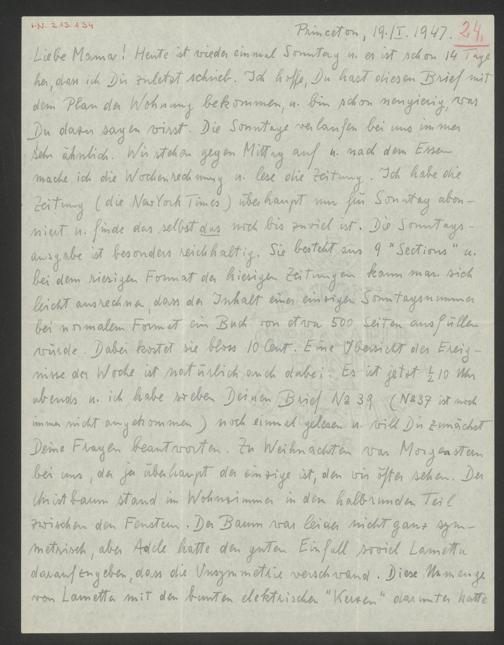 I.N. 213.134
Princeton, 19./I. 1947. 24.
Liebe Mama! Heute ist wieder einmal Sonntag u. es ist schon 14 Tage
her, dass ich Dir zuletzt schrieb. Ich hoffe, Du hast diesen Brief mit
dem Plan der Wohnung bekommen, u. bin schon neugierig, was
Du dazu sagen wirst. Die Sonntage verlaufen bei uns immer
sehr ähnlich. Wir stehen gegen Mittag auf u. nach dem Essen
mache ich die Wochenrechnung u. lese die Zeitung. Ich habe die
Zeitung (die New York Times) überhaupt nur für Sonntag abon-
niert u. finde das selbst das noch bis zuviel ist. Die Sonntags-
ausgabe ist besonders reichhaltig. Sie besteht aus 9 "Sections" u.
bei dem riesigen Format der hiesigen Zeitungen kann man sich
leicht ausrechnen, dass der Inhalt einer einzigen Sonntagsnummer
bei normalem Format ein Buch von etwa 500 Seiten ausfüllen
würde. Dabei kostet sie bloss 10 Cent. Eine Übersicht der Ereig-
nisse der Woche ist natürlich auch dabei. Es ist jetzt ½ 10 Uhr
abends u. ich habe soeben Deinen Brief No 39 (No 37 ist noch
immer nicht angekommen) noch einmal gelesen u. will Dir zunächst
Deine Fragen beantworten. Zu Weihnachten war Morgenstern
bei uns, der ja überhaupt der einzige ist, den wir öfter sehen. Der
Christbaum stand im Wohnzimmer in dem halbrunden Teil
zwischen den Fenstern. Der Baum war leider nicht ganz sym-
metrisch, aber Adele hatte den guten Einfall soviel Lametta
daraufzugeben, dass die Unsymmetrie verschwand. Diese Unmenge
von Lametta mit den bunten elektrischen "Kerzen" darunter hatte